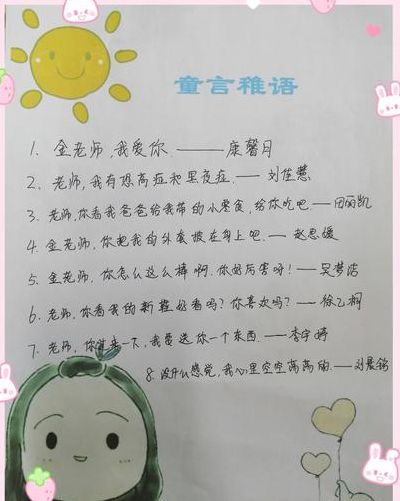 童言稚语
1. 金老师,我爱你.——康馨月
2. 老师,我有恐高症和黑夜症.——刘佳慧
3. 老师,你看我爸爸给我带的小零食,给你吃吧——田丽凯
4. 金老师,你把我的外套披在身上吧.——赵思媛
5. 金老师,你怎么这么棒啊.你好厉害呀!——吴梦洁
6. 老师,你看我的新鞋好看吗?你喜欢吗?——徐乙桐
7. 老师,你过来一下,我要送你一个东西.——李宇婷
8. 没什么感觉,我心里空空荡荡的.——刘晨铭